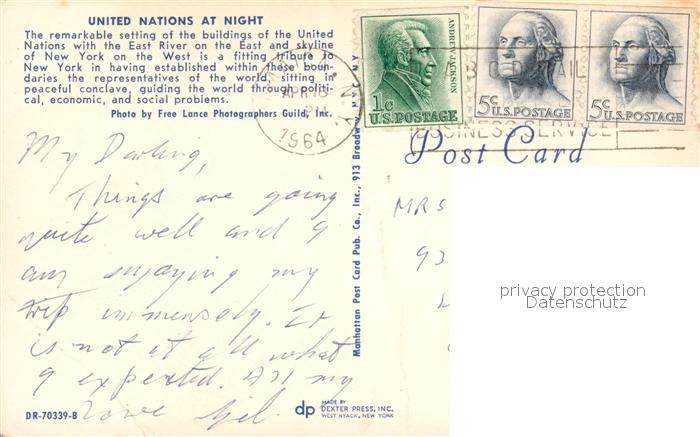 UNITED NATIONS AT NIGHT
The remarkable setting of the buildings of the United
Nations with the East River on the East and skyline
of New York on the West is a fitting tribute to
New York in having established within these boun-
daries the representatives of the world, sitting in
peaceful conclave, guiding the world through politi-
cal, economic, and social problems.
Photo by Free Lance Photographers Guild, Inc.
My Darling,
Things are going
quite well and I
am enjoying my
trip immensely. It
is not at all what
I expected. All my
Love
DR-70339-B
Manhattan Post Card Pub. Co., Inc., 913 Broadway, N.Y.C. NY
dp MADE BY
DEXTER PRESS, INC.
WEST NYACK, NEW YORK
N.Y.
APR 13
PM
1964
ANDREW JACKSON
1c
U.S. POSTAGE
5c
U.S. POSTAGE
5c
U.S. POSTAGE
MAIL
BUSINESS SERVICE
Post Card
MRS
93
privacy protection
Datenschutz